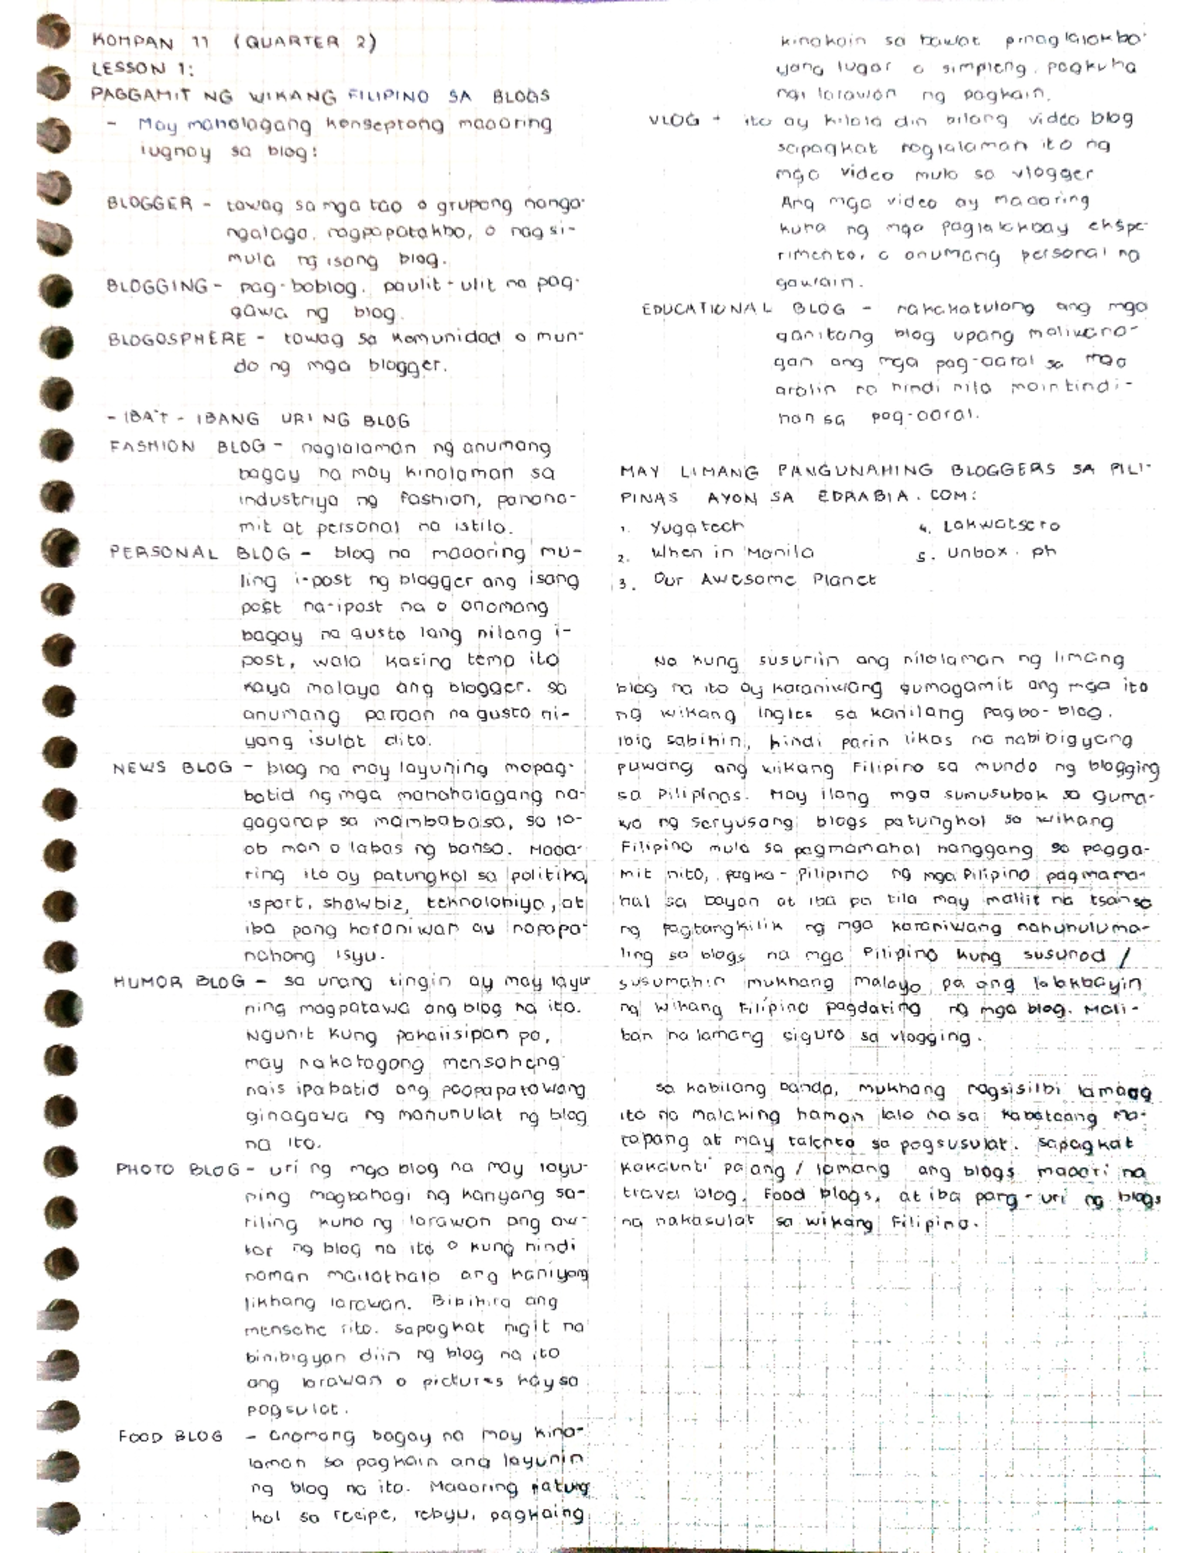 KOMPAN 11 (QUARTER 2)
LESSON 1:
PAGGAMIT NG WIKANG FILIPINO SA BLOGS
- May mahalagang konseptong maaaring
iugnay sa blog:
BLOGGER - tawag sa mga tao o grupong nanga-
ngalaga, nagpapatakbo, o nagsi-
mula ng isang blog.
BLOGGING - pag-boblog. paulit-ulit na pag-
gawa ng blog.
BLOGOSPHERE - tawag sa komunidad o mun-
do ng mga blogger.
- IBA'T - IBANG URI NG BLOG
FASHION BLOG - naglalaman ng anumang
bagay na may kinalaman sa
industriya ng fashion, panana-
mit at personal na istilo.
PERSONAL BLOG - blog na maaaring mu-
ling i-post ng blogger ang isang
post na-ipost na o anomang
bagay na gusto lang nilang i-
post, wala kasing temp ito
kaya malaya ang blogger. sa
anumang paraan na gusto ni-
yang isulat dito.
NEWS BLOG - blog na may layuning mapag-
batid ng mga mahahalagang na-
gaganap sa mambabasa, sa lo-
ob man o labas ng bansa. Maaa-
ring ito ay patungkol sa politika,
sport, showbiz, teknolohiya, at
iba pang karaniwan ay napapa-
nahong isyu.
HUMOR BLOG - sa unang tingin ay may layu
ning magpatawa ang blog na ito.
Ngunit kung pakaiisipan pa,
may nakatagong mensaheng
nais ipabatid ang pagpapatawang
ginagawa ng manunulat ng blog
na ito.
PHOTO BLOG - uri ng mga blog na may layu-
ning magbahagi ng kanyang sa-
riling kuha ng larawan ang aw-
tor ng blog na ito o kung hindi
naman mailathala ang kaniyang
likhang larawan. Bibihira ang
mensahe rito. sapagkat higit na
binibigyan diin ng blog na ito
ang larawan o pictures kaysa
pagsulat.
FOOD BLOG - anomang bagay na may kina-
laman sa pagkain ang layunin
ng blog na ito. Maaaring patung
kol sa recipe, rebyu, pagkaing
kinakain sa bawat pinaglalakba-
yang lugar o simpleng pagkuha
ng larawan ng pagkain.
VLOG - ito ay kilala din bilang video blog
sapagkat naglalaman ito ng
mga video mula sa vlogger
Ang mga video ay maaaring
kuha ng mga paglalakbay ekspe-
rimento, o anumang personal na
gawain.
EDUCATIONAL BLOG - nakakatulong ang mga
ganitong blog upang maliwana-
gan ang mga pag-aaral sa mga
aralin na hindi nila maintindi-
han sa pag-aaral.
MAY LIMANG PANGUNAHING BLOGGERS SA PILI-
PINAS AYON SA EDRABIA.COM:
1. Yugatech
2. When in Manila
3. Our Awesome Planet
4. Lakwatsero
5. Unbox.ph
Na kung susuriin ang nilalaman ng limang
blog na ito ay karaniwang gumagamit ang mga ito
ng wikang Ingles sa kanilang pagba-blog.
Ibig sabihin, hindi parin likas na nabibigyang
puwang ang wikang Filipino sa mundo ng blogging
sa Pilipinas. May ilang mga sumusubok sa guma-
wa ng seryusong blogs patungkol sa wikang
Filipino mula sa pagmamahal hanggang sa pagga-
mit nito, pagka-Pilipino ng mga Pilipino pagmama-
hal sa bayan at iba pa tila may maliit na tsansa
ng pagtangkilik ng mga karaniwang nahuhuluma-
ling sa blogs na mga Pilipino kung susunod /
susumahin mukhang malayo pa ang lalakbayin
ng wikang Filipino pagdating ng mga blog. Mali-
ban na lamang siguro sa vlogging.
sa kabilang banda, mukhang nagsisilbi lamang
ito na malaking hamon lalo na sa kabataang ma-
tapang at may talento sa pagsusulat. sapagkat
kakaunti palang / lamang ang blogs maaari na
travel blog, Food blogs, at iba pang-uri ng blogs
na nakasulat sa wikang Filipino.